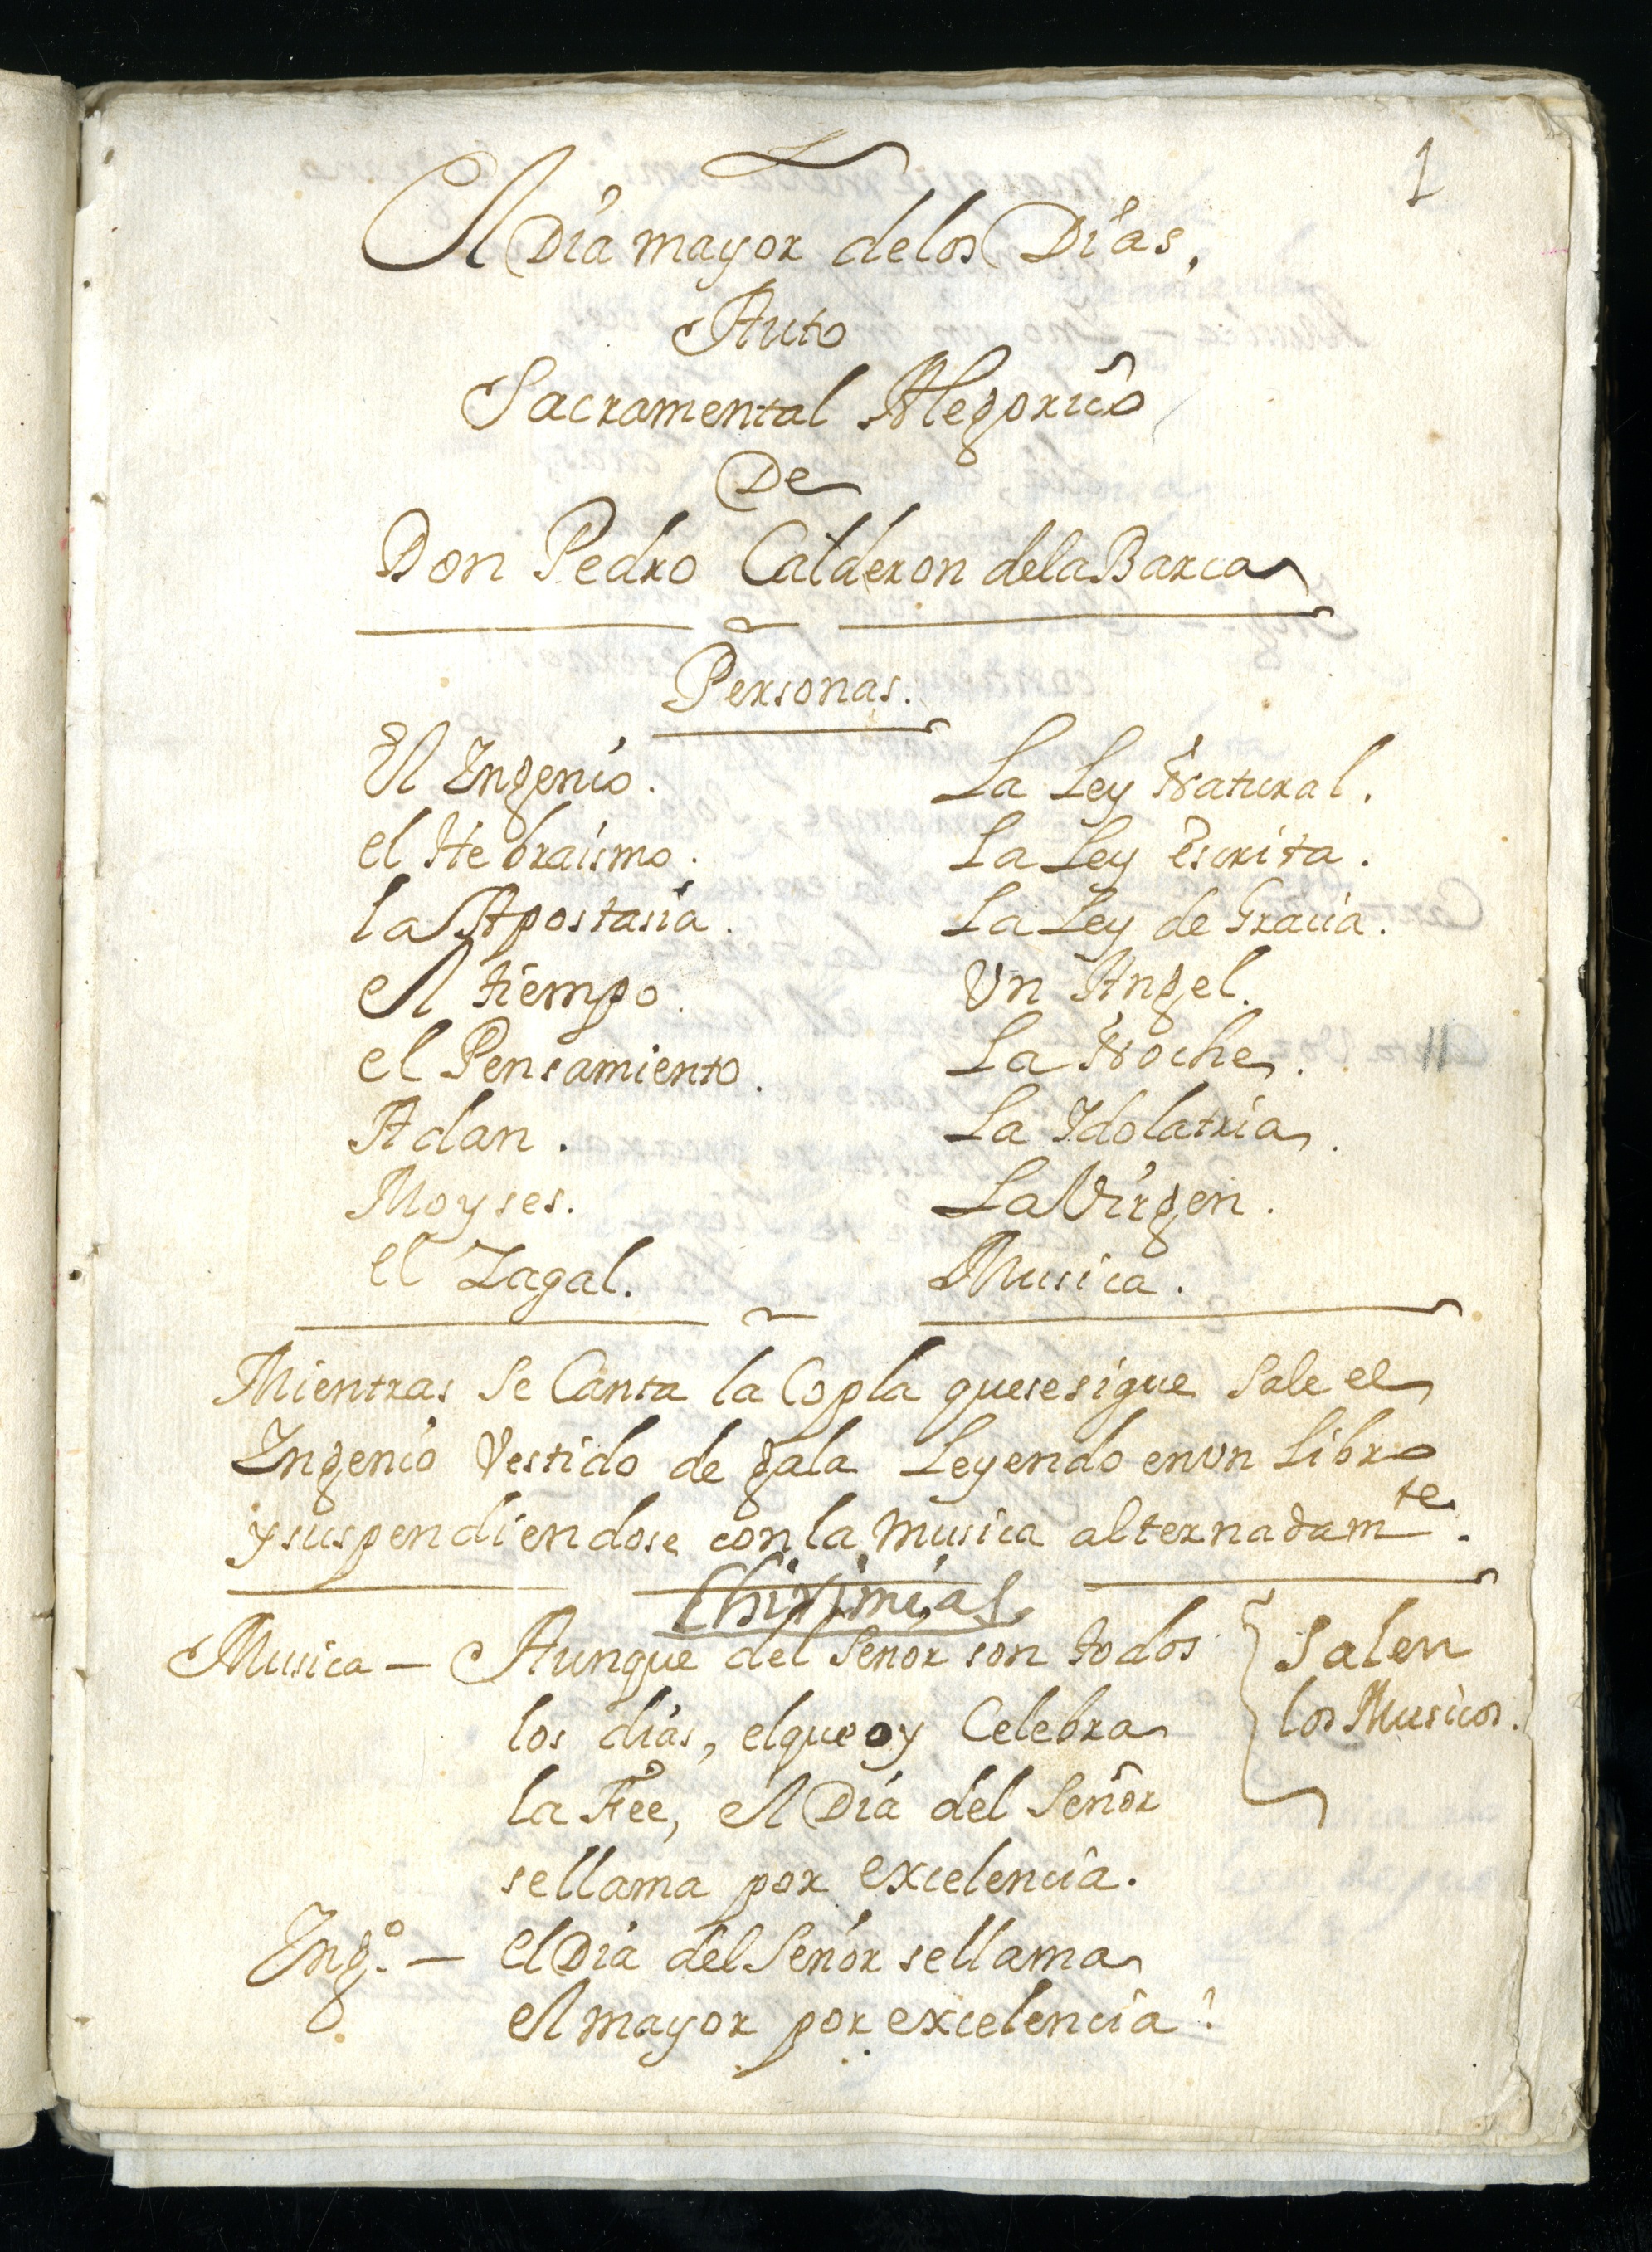 1
El Dia mayor delos Dias,
Auto
Sacramental Alegorico
De
Don Pedro Calderon dela Barca
Personas.
El Ingenio.
el Hebraismo.
la Apostasia.
el tiempo.
el Pensamiento.
Adan.
Moyses.
el Zagal.
La Ley Natural.
La Ley Escrita.
La Ley de Gracia.
Un Angel.
La Noche.
La Idolatria.
La Virgen.
Musica.
Mientras Se Canta la Copla quesesigue Sale el
Ingenio Vestido de gala Leyendo enun Libro
ysuspendiendose conla musica alternadamte.
Chirimias
Musica – Aunque del Señor son todos
los dias, elque oy Celebra
la Fee, el Dia del Señor
sellama por excelencia.
Salen
los Musicos.
Ingo. – el Dia del Señor sellama
el mayor por excelencia?